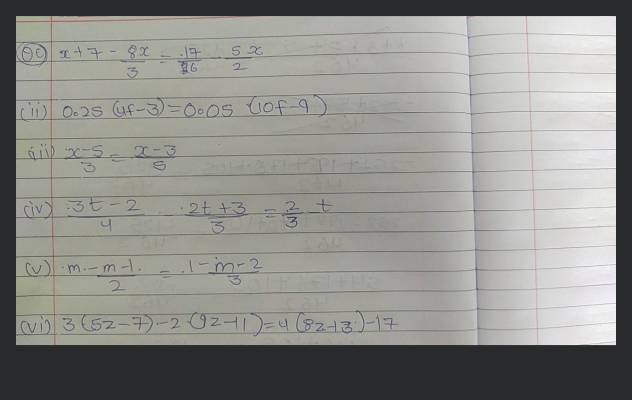 Q(i) x+7 - 8x/3 = 17/6 - 5x/2
(ii) 0.25 (4f-3) = 0.05 (10f-9)
(iii) x-5/3 = x-3/5
(iv) 3t-2/4 - 2t+3/3 = 2/3 - t
(v) m - m-1/2 = 1 - m-2/3
(vi) 3(5z-7)-2(9z-11)=4(8z-13)-17